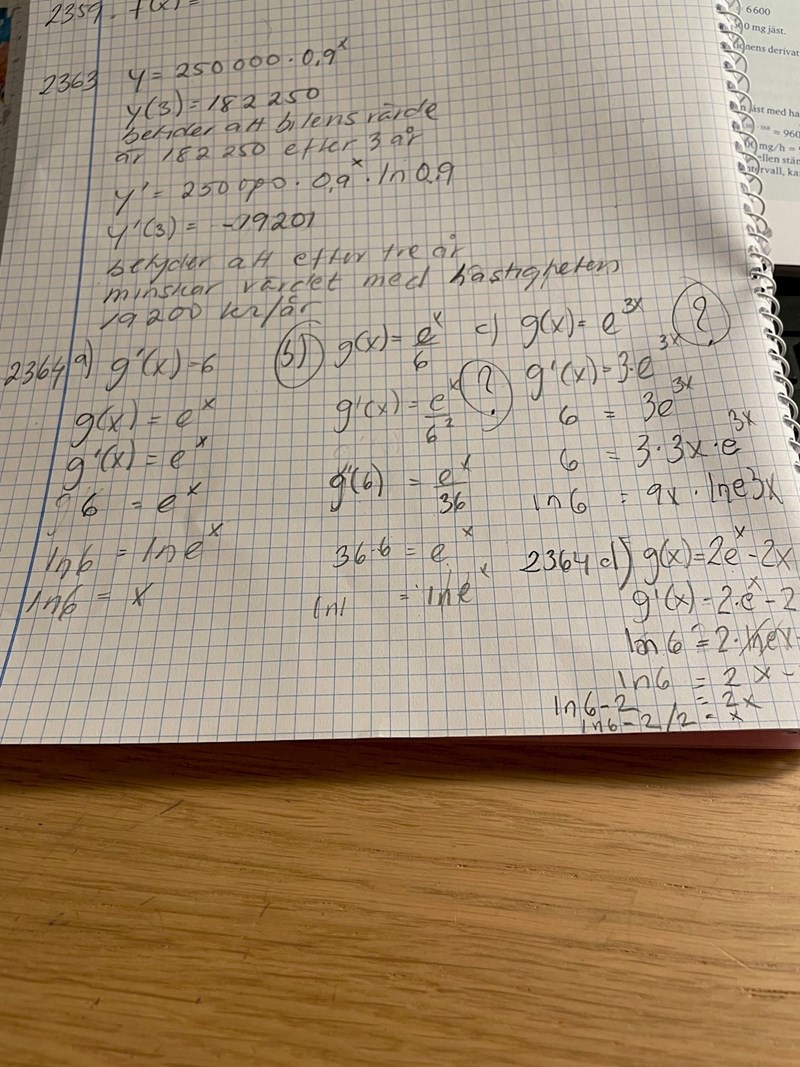 2359. f(x) =
2363 y = 250 000 · 0,9^x
y(3) = 182 250
betyder att bilens värde
är 182 250 efter 3 år
y' = 250 000 · 0,9^x · ln 0,9
y'(3) = -19201
betyder att efter tre år
minskar värdet med hastigheten
19 200 kr/år
2364 a) g'(x) = 6
g(x) = e^x
g'(x) = e^x
6 = e^x
ln6 = ln e^x
ln6 = x
b) g(x) = e^x/6
g'(x) = e^x/6^2 ?
g'(6) = e^x/36
36·6 = e^x
ln = ln e^x
c) g(x) = e^3x ?
g'(x) = 3·e^3x
6 = 3e^3x
6 = 3·3x·e^3x
ln6 = 9x · lne3x
2364 d) g(x) = 2e^x - 2x
g'(x) = 2·e^x - 2
ln 6 = 2·lnex
ln6 = 2x -
ln6-2 = 2x
ln6-2/2 = x
6600
0 mg jäst.
nens derivat
jäst med ha
≈ 960
mg/h =
ellen stär
tervall, ka